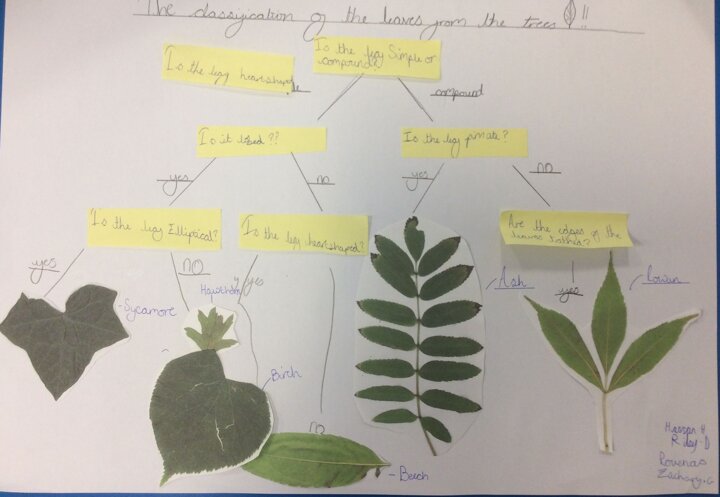 The classification of the leaves from the trees !!
Is the leaf Simple or
compound?
Is the leaf heartshape
compound
Is it lobed ??
Is the leaf pinnate?
yes
no
yes
no
Is the leaf Elliptical?
Is the leaf heartshaped?
Are the edges of the
leaves toothed?
yes
NO
yes
yes
Hawthorn
Sycamore
Ash
Rowen
Birch
no
Beech
Hassan H
Riley D
Rowenas
Zachary.G